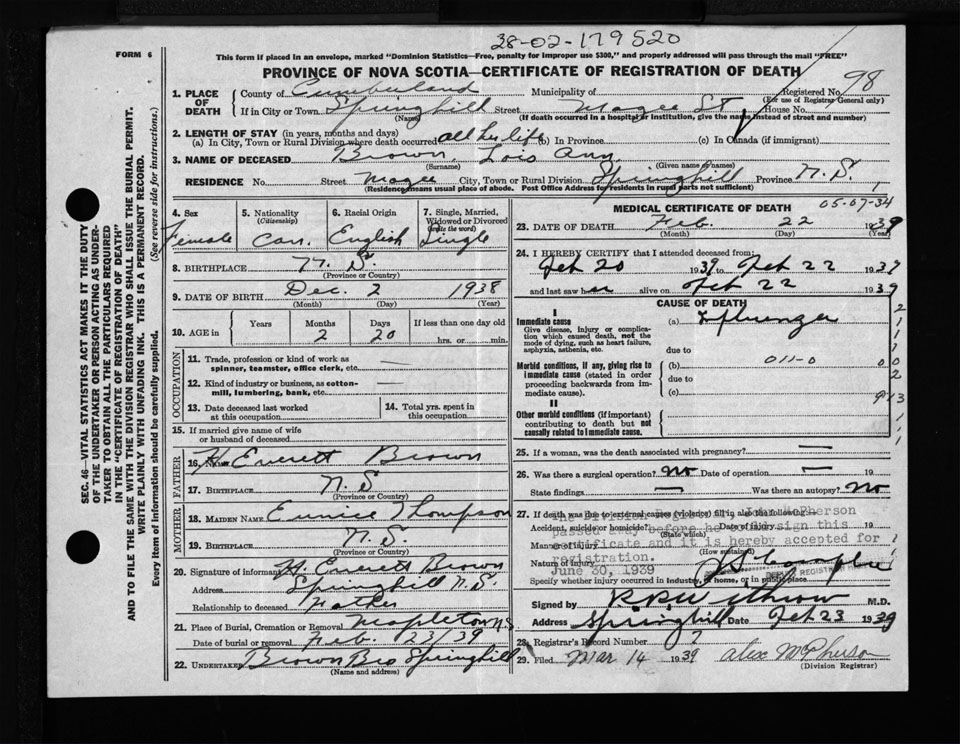 38-02-179520
FORM 6
This form if placed in an envelope, marked "Dominion Statistics—Free, penalty for improper use $300," and properly addressed will pass through the mail "FREE"
PROVINCE OF NOVA SCOTIA—CERTIFICATE OF REGISTRATION OF DEATH
98
1. PLACE OF DEATH
County of Cumberland Municipality of Registered No.
(For use of Registrar General only)
If in City or Town Springhill Street Magee St House No.
(Name) (If death occurred in a hospital or institution, give the name instead of street and number)
2. LENGTH OF STAY (in years, months and days)
(a) In City, Town or Rural Division where death occurred all her life (b) In Province (c) In Canada (if immigrant)
3. NAME OF DECEASED Brown, Lois Ann
(Surname) (Given name or names)
RESIDENCE No. Street Magee City, Town or Rural Division Springhill Province N.S.
(Residence means usual place of abode. Post Office Address for residents in rural parts not sufficient)
4. Sex
Female
5. Nationality
(Citizenship)
Can.
6. Racial Origin
English
7. Single, Married, Widowed or Divorced
(write the word)
Single
8. BIRTHPLACE N.S.
(Province or Country)
9. DATE OF BIRTH Dec. 2 1938
(Month) (Day) (Year)
10. AGE in
Years Months Days If less than one day old
2 20 hrs. or min.
OCCUPATION
11. Trade, profession or kind of work as
spinner, teamster, office clerk, etc. —
12. Kind of industry or business, as cotton-
mill, lumbering, bank, etc. —
13. Date deceased last worked
at this occupation
14. Total yrs. spent in
this occupation
15. If married give name of wife
or husband of deceased
FATHER
16. Name H. Everett Brown
17. BIRTHPLACE N.S
(Province or Country)
MOTHER
18. MAIDEN NAME Eunice Thompson
19. BIRTHPLACE N.S.
(Province or Country)
20. Signature of informant H. Everett Brown
Address Springhill N.S.
Relationship to deceased Father
21. Place of Burial, Cremation or Removal Mapleton N.S
Date of burial or removal Feb. 23/39
22. UNDERTAKER Brown Bro Springhill
(Name and address)
MEDICAL CERTIFICATE OF DEATH
05-07-34
23. DATE OF DEATH Feb 22 1939
(Month) (Day) (Year)
24. I HEREBY CERTIFY that I attended deceased from:
Feb 20 1939 to Feb 22 1939
and last saw her alive on Feb 22 1939
CAUSE OF DEATH
I
Immediate cause
Give disease, injury or complica-
tion which caused death, not the
mode of dying, such as heart failure,
asphyxia, asthenia, etc.
(a)
due to
Morbid conditions, if any, giving rise to
immediate cause (stated in order
proceeding backwards from im-
mediate cause).
(b) 011-0
due to
(c)
II
Other morbid conditions (if important)
contributing to death but not
causally related to immediate cause.
25. If a woman, was the death associated with pregnancy? —
26. Was there a surgical operation? No Date of operation — 19
State findings — Was there an autopsy? No
27. If death was due to external causes (violence) fill in also the following:—
Accident, suicide or homicide? Date of injury 19
(State which)
Manner of injury
(How sustained)
Nature of injury
Specify whether injury occurred in industry, in home, or in public place
passed away before he could sign this
certificate and it is hereby accepted for
registration.
June 30, 1939
Signed by M.D.
Address Springhill Date Feb 23 1939
28. Registrar's Record Number 7
29. Filed Mar 14 1939 Alex McPherson
(Division Registrar)
SEC. 46—VITAL STATISTICS ACT MAKES IT THE DUTY
OF THE UNDERTAKER OR PERSON ACTING AS UNDER-
TAKER TO OBTAIN ALL THE PARTICULARS REQUIRED
IN THE "CERTIFICATE OF REGISTRATION OF DEATH"
AND TO FILE THE SAME WITH THE DIVISION REGISTRAR WHO SHALL ISSUE THE BURIAL PERMIT.
WRITE PLAINLY WITH UNFADING INK. THIS IS A PERMANENT RECORD.
Every item of information should be carefully supplied.
(See reverse side for instructions.)